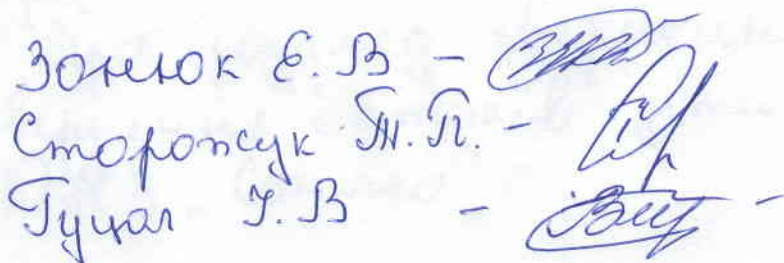 Зонюк Є. В –
Сторожук Т. П. –
Гуцол У. В – –